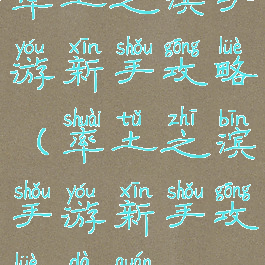 yóu xīn shǒu gōng lüè
游新手攻略
shuài tǔ zhī bīn
(率土之滨
shǒu yóu xīn shǒu gōng
手游新手攻
lüè dà quán